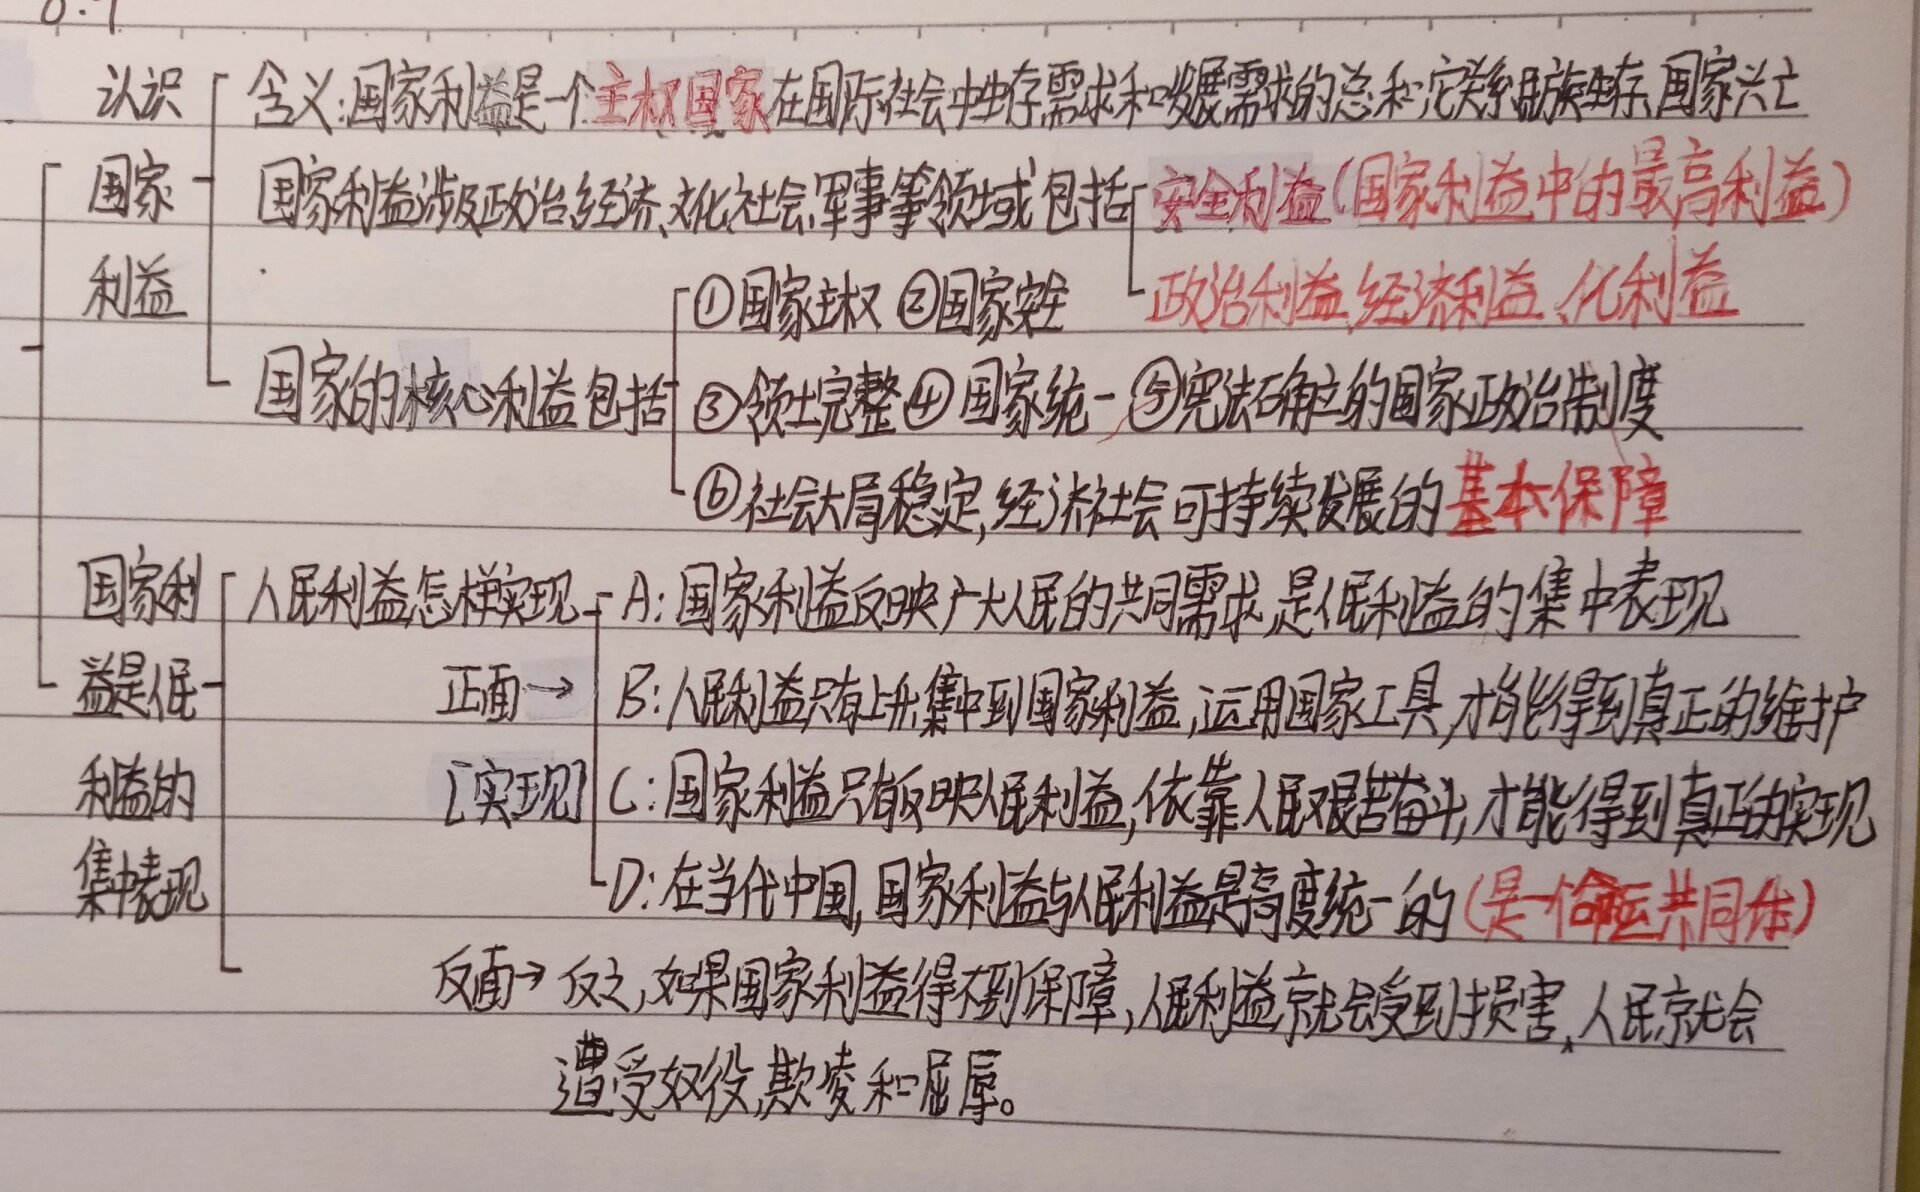 8.1
认识
含义:国家利益是一个主权国家在国际社会中生存需求和发展需求的总和,它关系民族生存、国家兴亡
国家
国家利益涉及政治、经济、文化、社会、军事等领域 包括 安全利益(国家利益中的最高利益)
利益
政治利益、经济利益、化利益
①国家主权 ②国家安全
国家的核心利益包括
③领土完整 ④国家统一 ⑤宪法确立的国家政治制度
⑥社会大局稳定,经济社会可持续发展的基本保障
国家利
人民利益怎样实现
A:国家利益反映广大人民的共同需求,是人民利益的集中表现
益是人民
正面→
B:人民利益只有上升、集中到国家利益,运用国家工具,才能得到真正的维护
利益的
[实现]
C:国家利益只有反映人民利益,依靠人民艰苦奋斗,才能得到真正的实现
集中表现
D:在当代中国,国家利益与人民利益是高度统一的(是一个命运共同体)
反面→ 反之,如果国家利益得不到保障,人民利益就会受到损害,人民就会
遭受奴役,欺凌和屈辱。